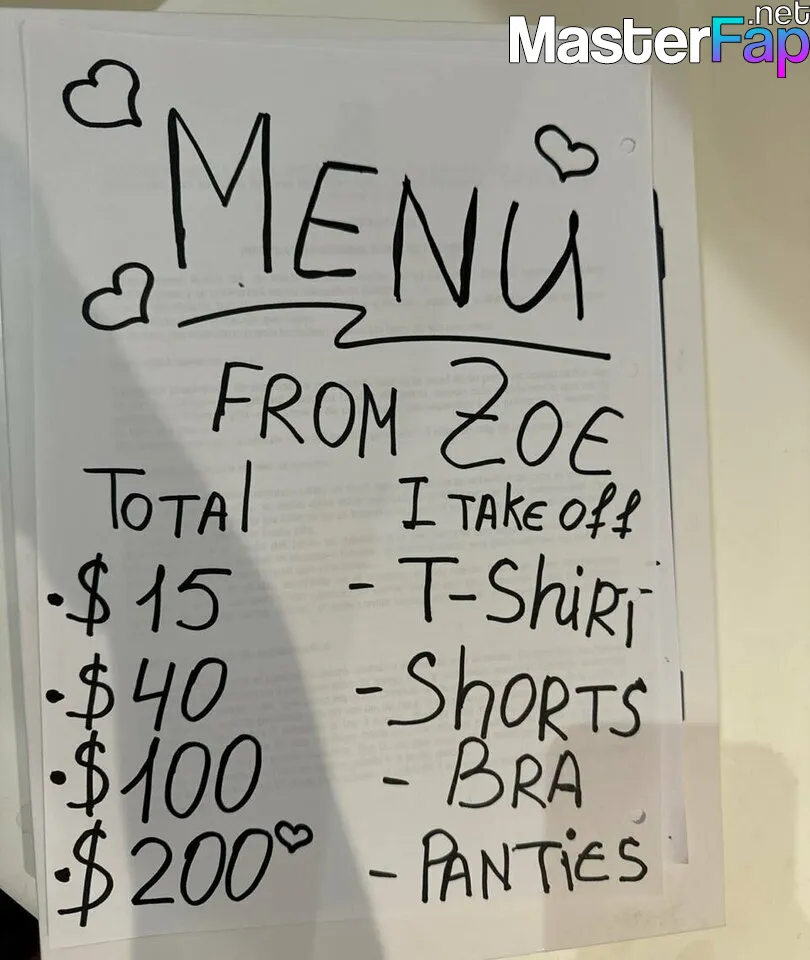 MasterFap.net
MENU
FROM ZOE
TOTAl I TAKE Off
·$ 15 - T-ShiRT
·$ 40 - ShORTS
·$ 100 - BRA
·$ 200 - PANTiES